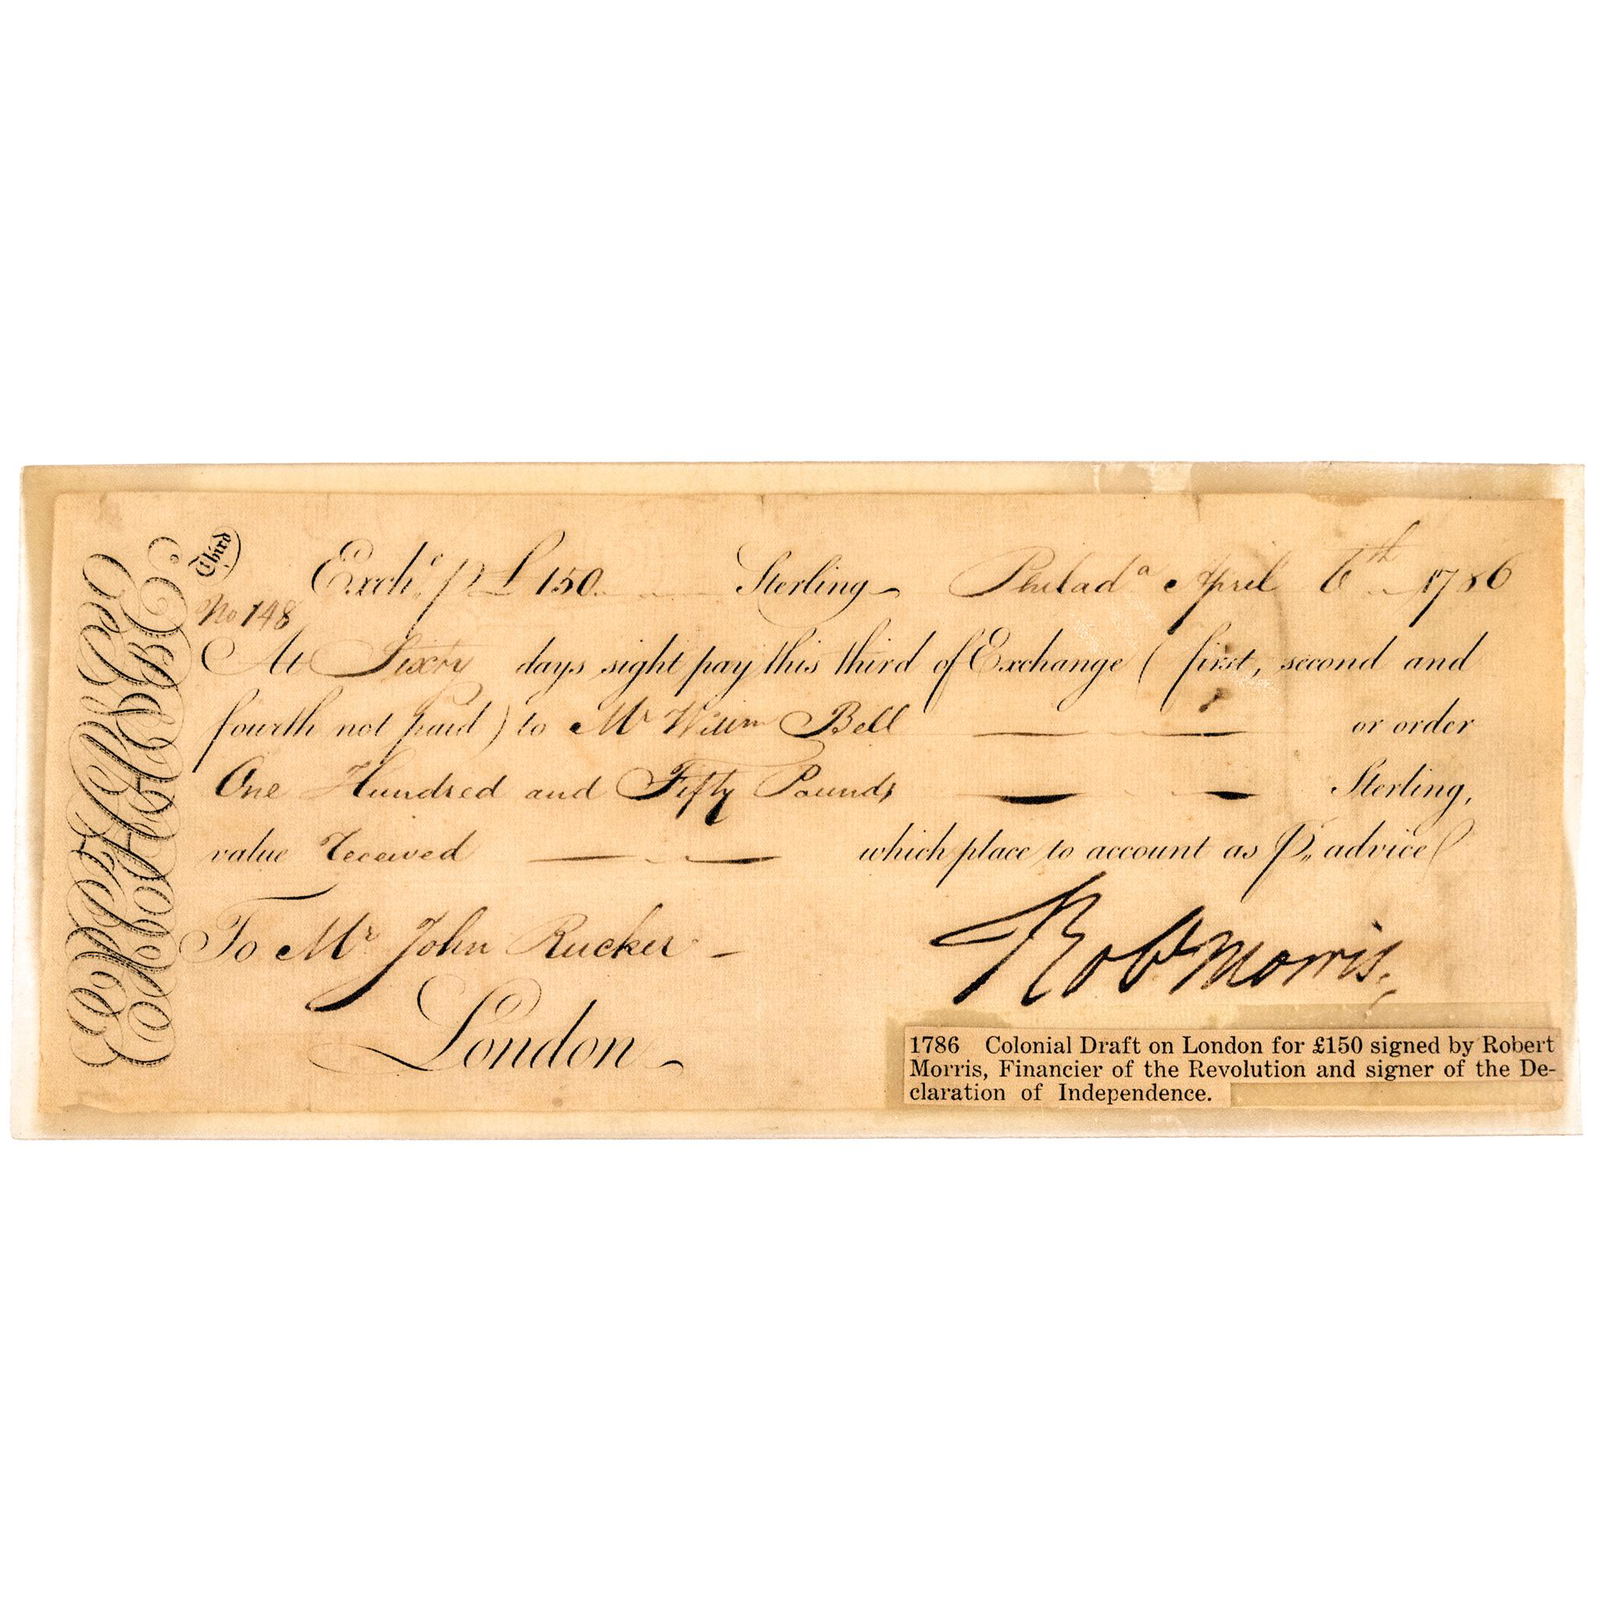 Third
No 148
Exch.e p £ 150 Sterling Philada April 6th 1786
At Sixty days sight pay this third of Exchange (first, second and
fourth not paid) to Mr Willm Bell or order
One Hundred and Fifty Pounds Sterling,
value Received which place to account as P. advice
To Mr John Rucker
London
Robt Morris
1786 Colonial Draft on London for £150 signed by Robert
Morris, Financier of the Revolution and signer of the De-
claration of Independence.